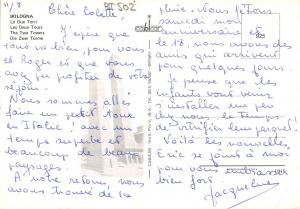 11/8
BOLOGNA
Le Due Torri
Les Deux Tours
The Two Towers
Die Zwei Türme
BI 502
Chère Colette,
J'espère que
tout va bien, pour vous
et Roger et que vous
avez pu profiter de votre
séjour.
Nous sommes allés
faire un petit tour
en Italie, avec un
temps superbe et
beaucoup de beaux
paysages.
A notre retour, nous
avons trouvé de la
pluie. Nous fêtons
samedi mon
anniversaire et
le 18, nous avons des
amis qui arrivent
pour quelques jours.
Je pense que les
enfants vont venir
s'installer un peu
chez nous, le temps
de vitrifier leur parquet!
Voilà les nouvelles.
Eric se joint à moi
pour vous embrasser
bien fort
Jacqueline